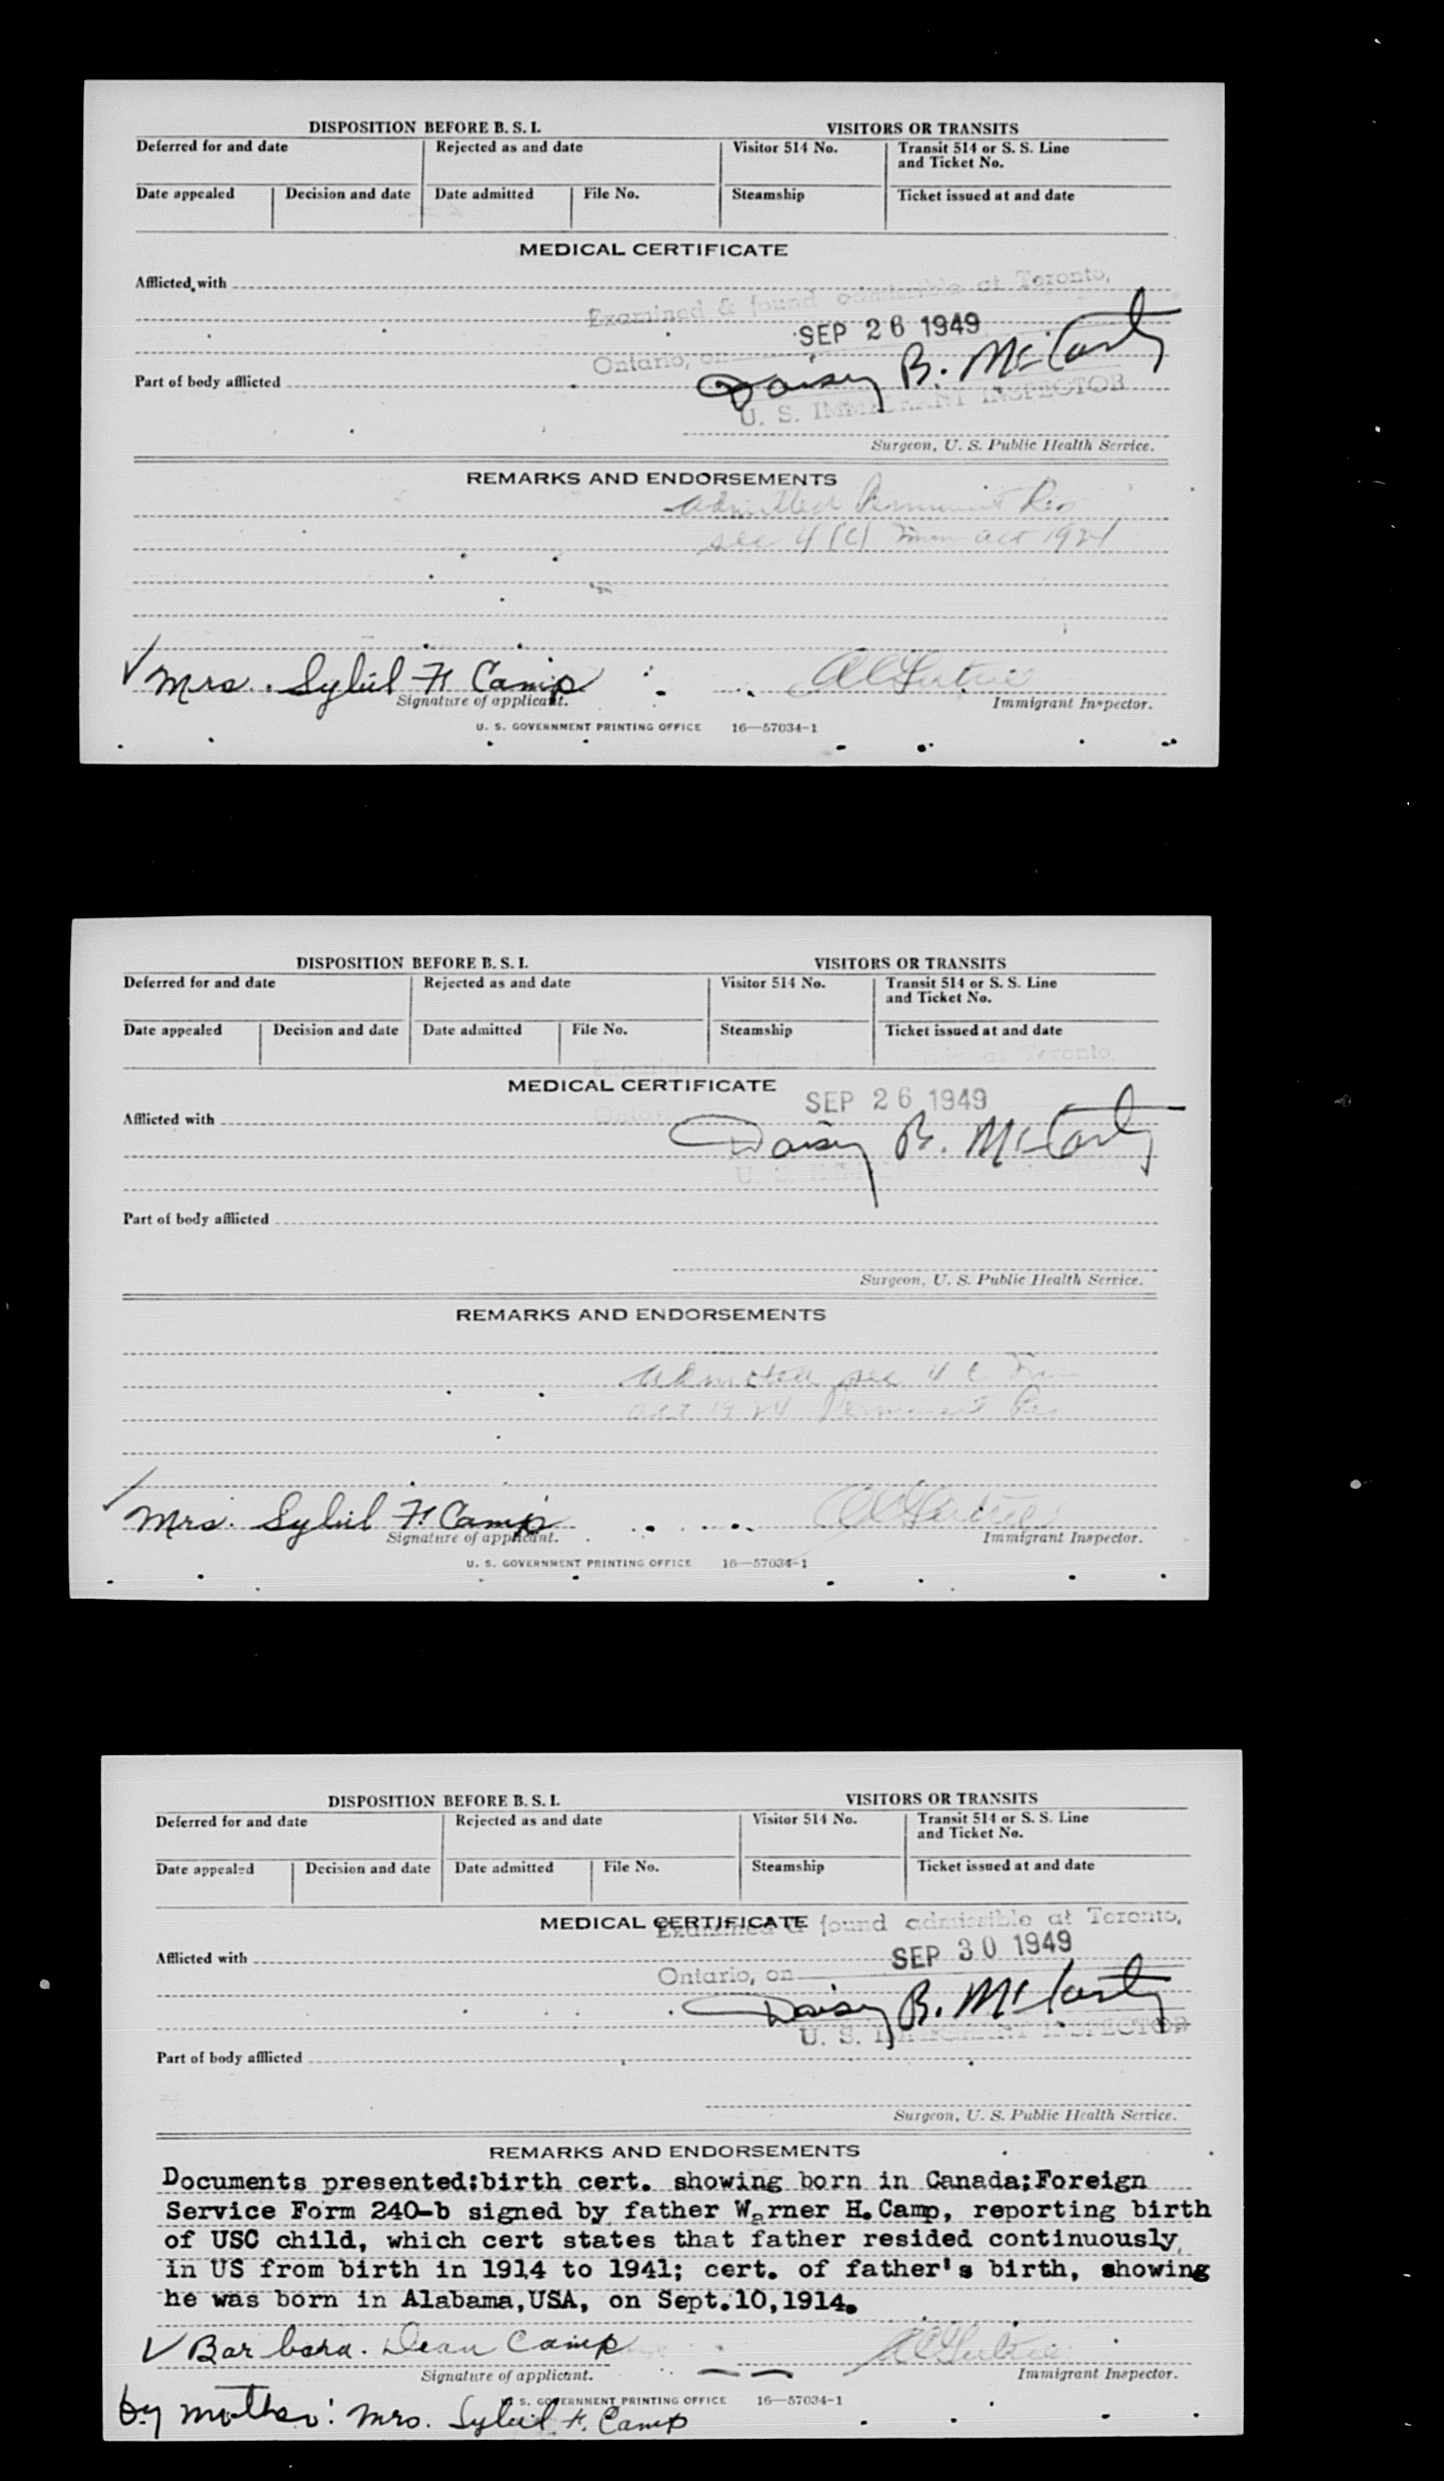 DISPOSITION BEFORE B. S. I.
VISITORS OR TRANSITS
Deferred for and date
Rejected as and date
Visitor 514 No.
Transit 514 or S. S. Line
and Ticket No.
Date appealed
Decision and date
Date admitted
File No.
Steamship
Ticket issued at and date
MEDICAL CERTIFICATE
Afflicted with
Examined & found admissible at Toronto,
SEP 26 1949
Ontario, on
Daisy B. McCarty
Part of body afflicted
U. S. IMMIGRANT INSPECTOR
Surgeon, U. S. Public Health Service.
REMARKS AND ENDORSEMENTS
Admitted Permanent Res
sec 4 (c) Imm act 1924
Mrs. Sybil F. Camp
Signature of applicant.
Immigrant Inspector.
U. S. GOVERNMENT PRINTING OFFICE 16—57034-1
DISPOSITION BEFORE B. S. I.
VISITORS OR TRANSITS
Deferred for and date
Rejected as and date
Visitor 514 No.
Transit 514 or S. S. Line
and Ticket No.
Date appealed
Decision and date
Date admitted
File No.
Steamship
Ticket issued at and date
at Toronto,
MEDICAL CERTIFICATE
SEP 26 1949
Afflicted with
Daisy B. McCarty
Part of body afflicted
Surgeon, U. S. Public Health Service.
REMARKS AND ENDORSEMENTS
Admitted sec 4 c Imm
act 1924 Permanent Res
Mrs. Sybil F. Camp
Signature of applicant.
Immigrant Inspector.
U. S. GOVERNMENT PRINTING OFFICE 16—57034-1
DISPOSITION BEFORE B. S. I.
VISITORS OR TRANSITS
Deferred for and date
Rejected as and date
Visitor 514 No.
Transit 514 or S. S. Line
and Ticket No.
Date appealed
Decision and date
Date admitted
File No.
Steamship
Ticket issued at and date
MEDICAL CERTIFICATE
Examined & found admissible at Toronto,
Afflicted with
SEP 30 1949
Ontario, on
Daisy B. McCarty
U. S. IMMIGRANT INSPECTOR
Part of body afflicted
Surgeon, U. S. Public Health Service.
REMARKS AND ENDORSEMENTS
Documents presented:birth cert. showing born in Canada;Foreign
Service Form 240-b signed by father Warner H.Camp, reporting birth
of USC child, which cert states that father resided continuously
in US from birth in 1914 to 1941; cert. of father's birth, showing
he was born in Alabama,USA, on Sept.10,1914.
Barbara Dean Camp
Signature of applicant.
Immigrant Inspector.
U. S. GOVERNMENT PRINTING OFFICE 16—57034-1
by mother: Mrs. Sybil F. Camp